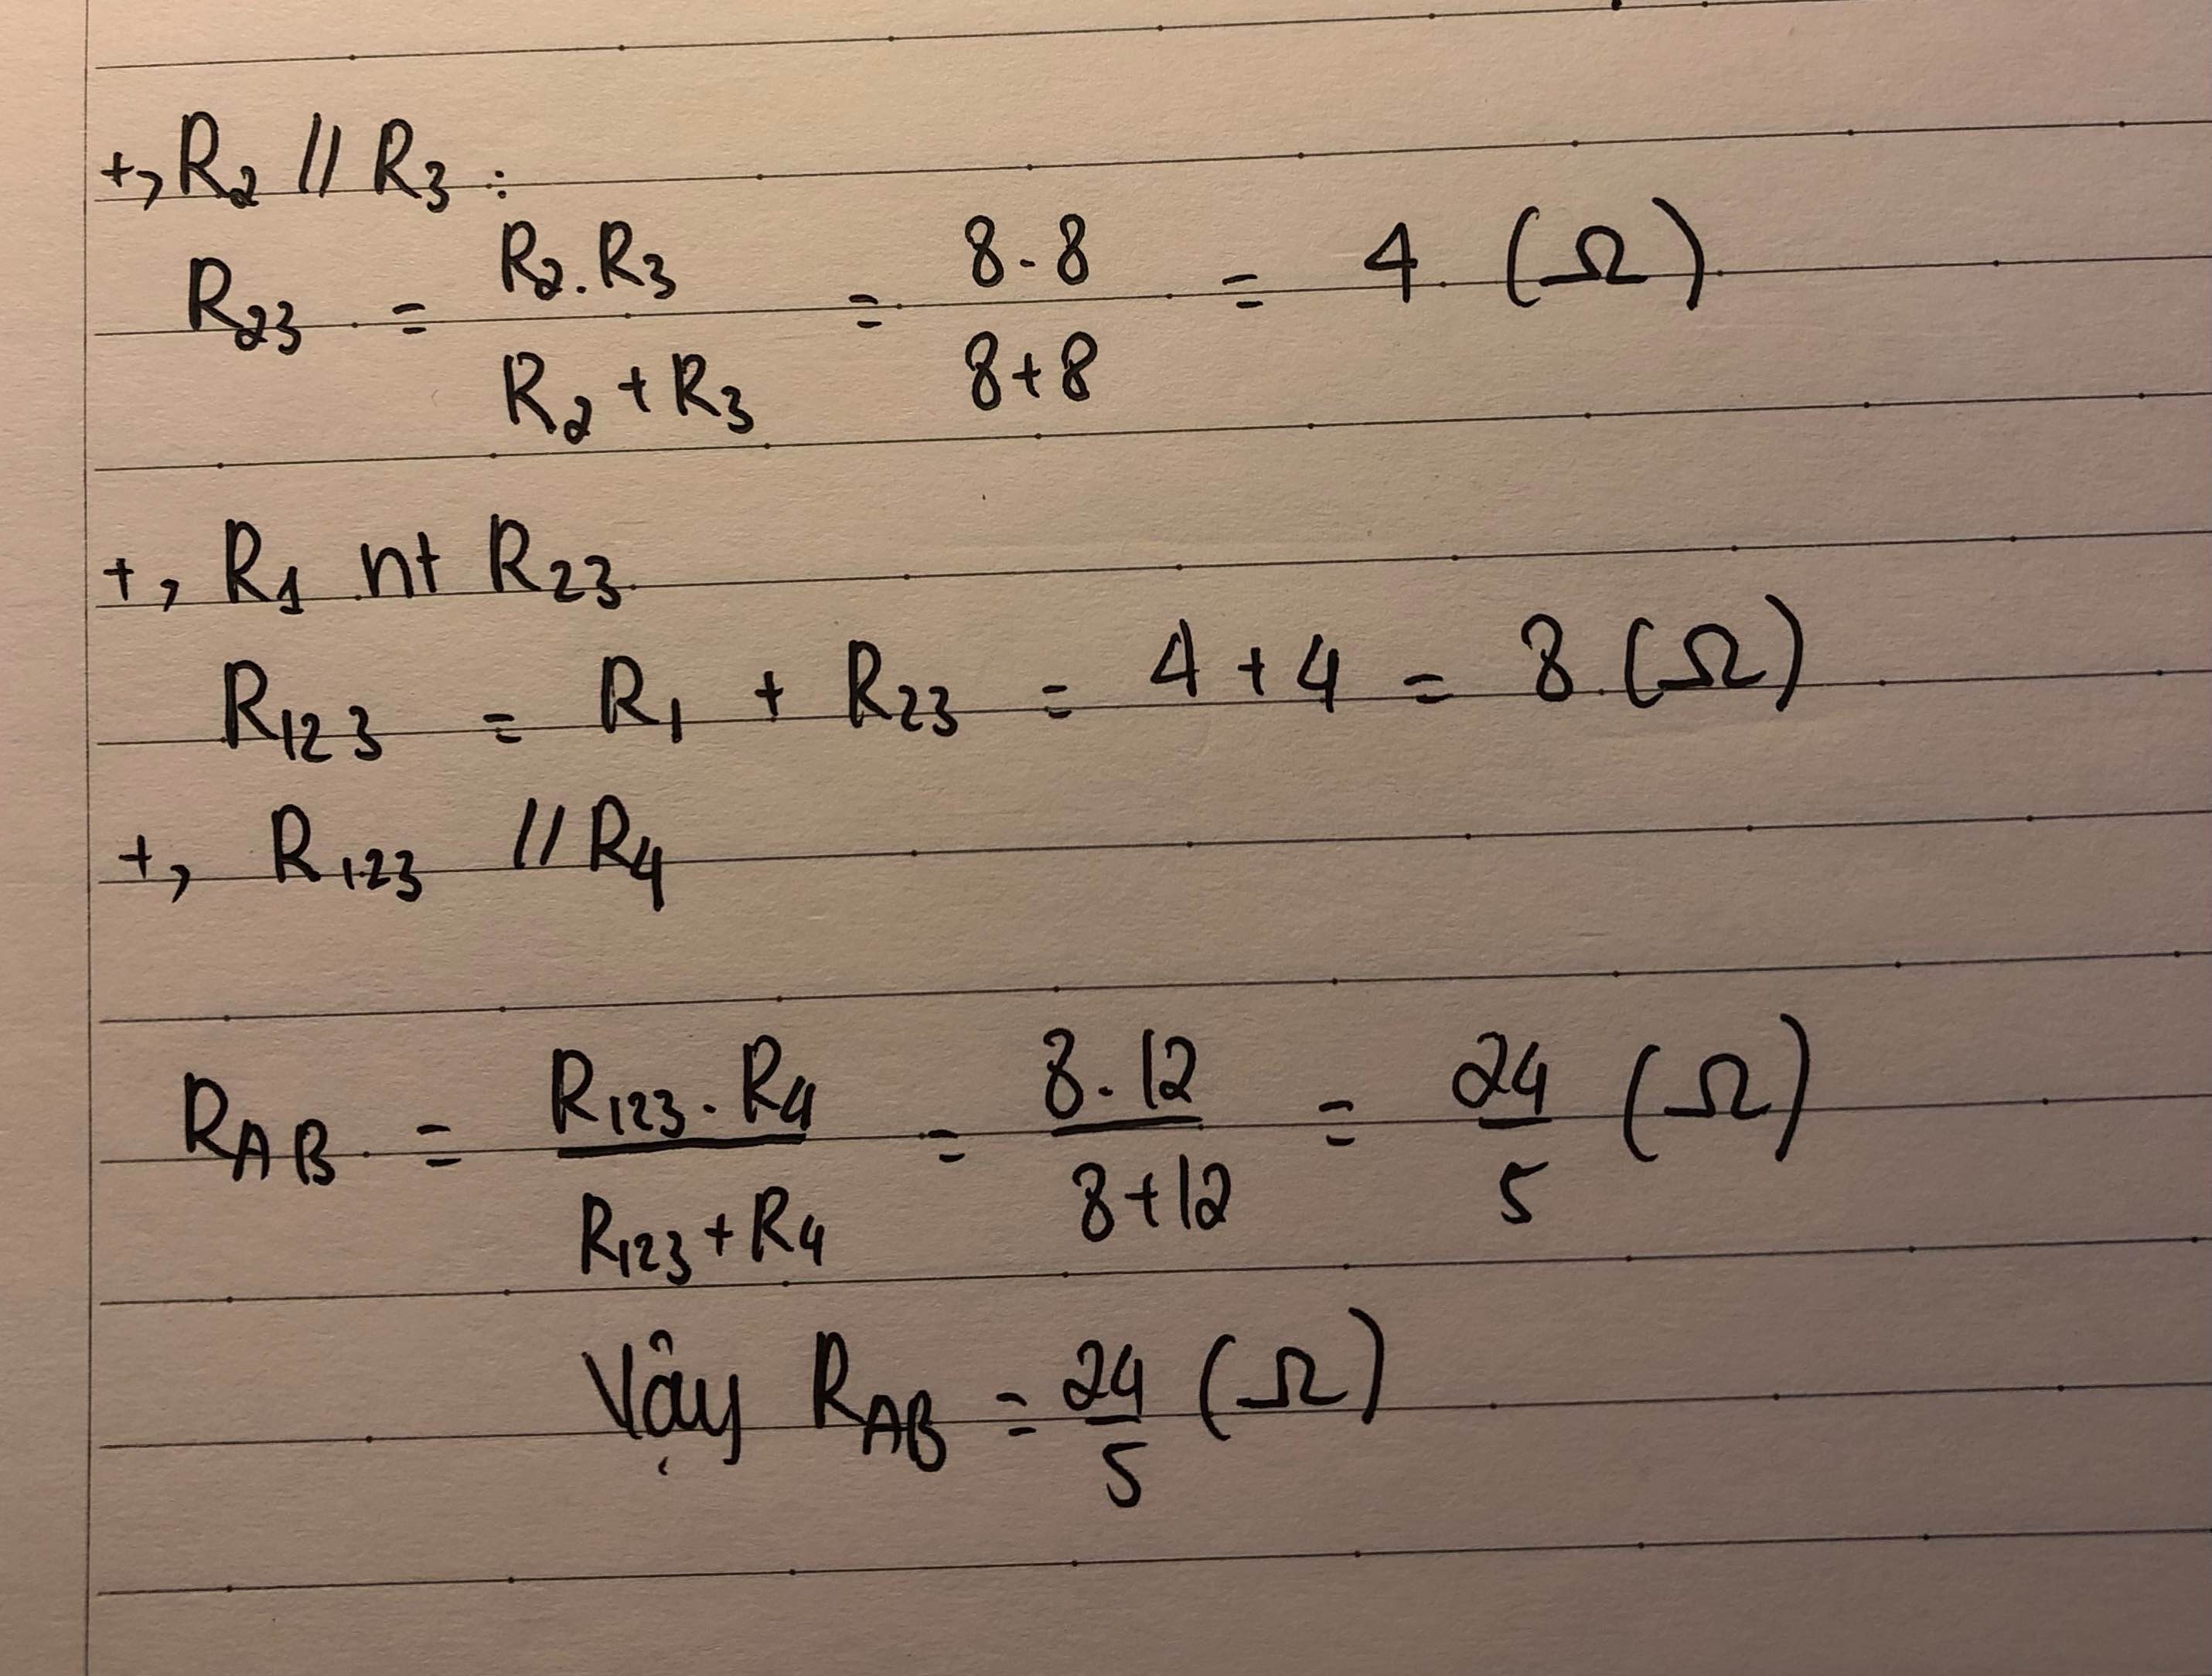 +, R₂ // R₃ :
R₂₃ = R₂.R₃ / R₂ + R₃ = 8.8 / 8+8 = 4 (Ω)
+, R₁ nt R₂₃
R₁₂₃ = R₁ + R₂₃ = 4 + 4 = 8 (Ω)
+, R₁₂₃ // R₄
R_AB = R₁₂₃ . R₄ / R₁₂₃ + R₄ = 8.12 / 8+12 = 24 / 5 (Ω)
Vậy R_AB = 24 / 5 (Ω)